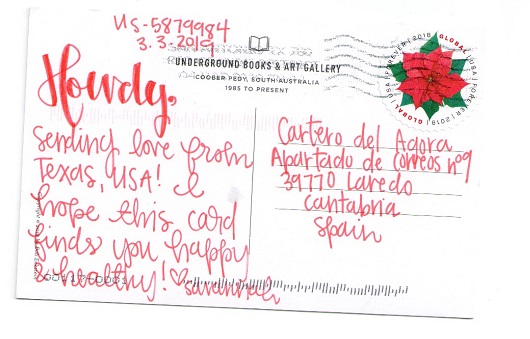 US-5879984
3.3.2019
UNDERGROUND BOOKS & ART GALLERY
COOBER PEDY, SOUTH AUSTRALIA
1985 TO PRESENT
GLOBAL | USA | FOREVER | 2018
GLOBAL | USA | FOREVER | 2018
Howdy,
sending love from
Texas, USA! I
hope this card
finds you happy
& healthy! ♡ savannah
Cartero del Agora
Apartado de correos nº9
39770 Laredo
Cantabria
Spain